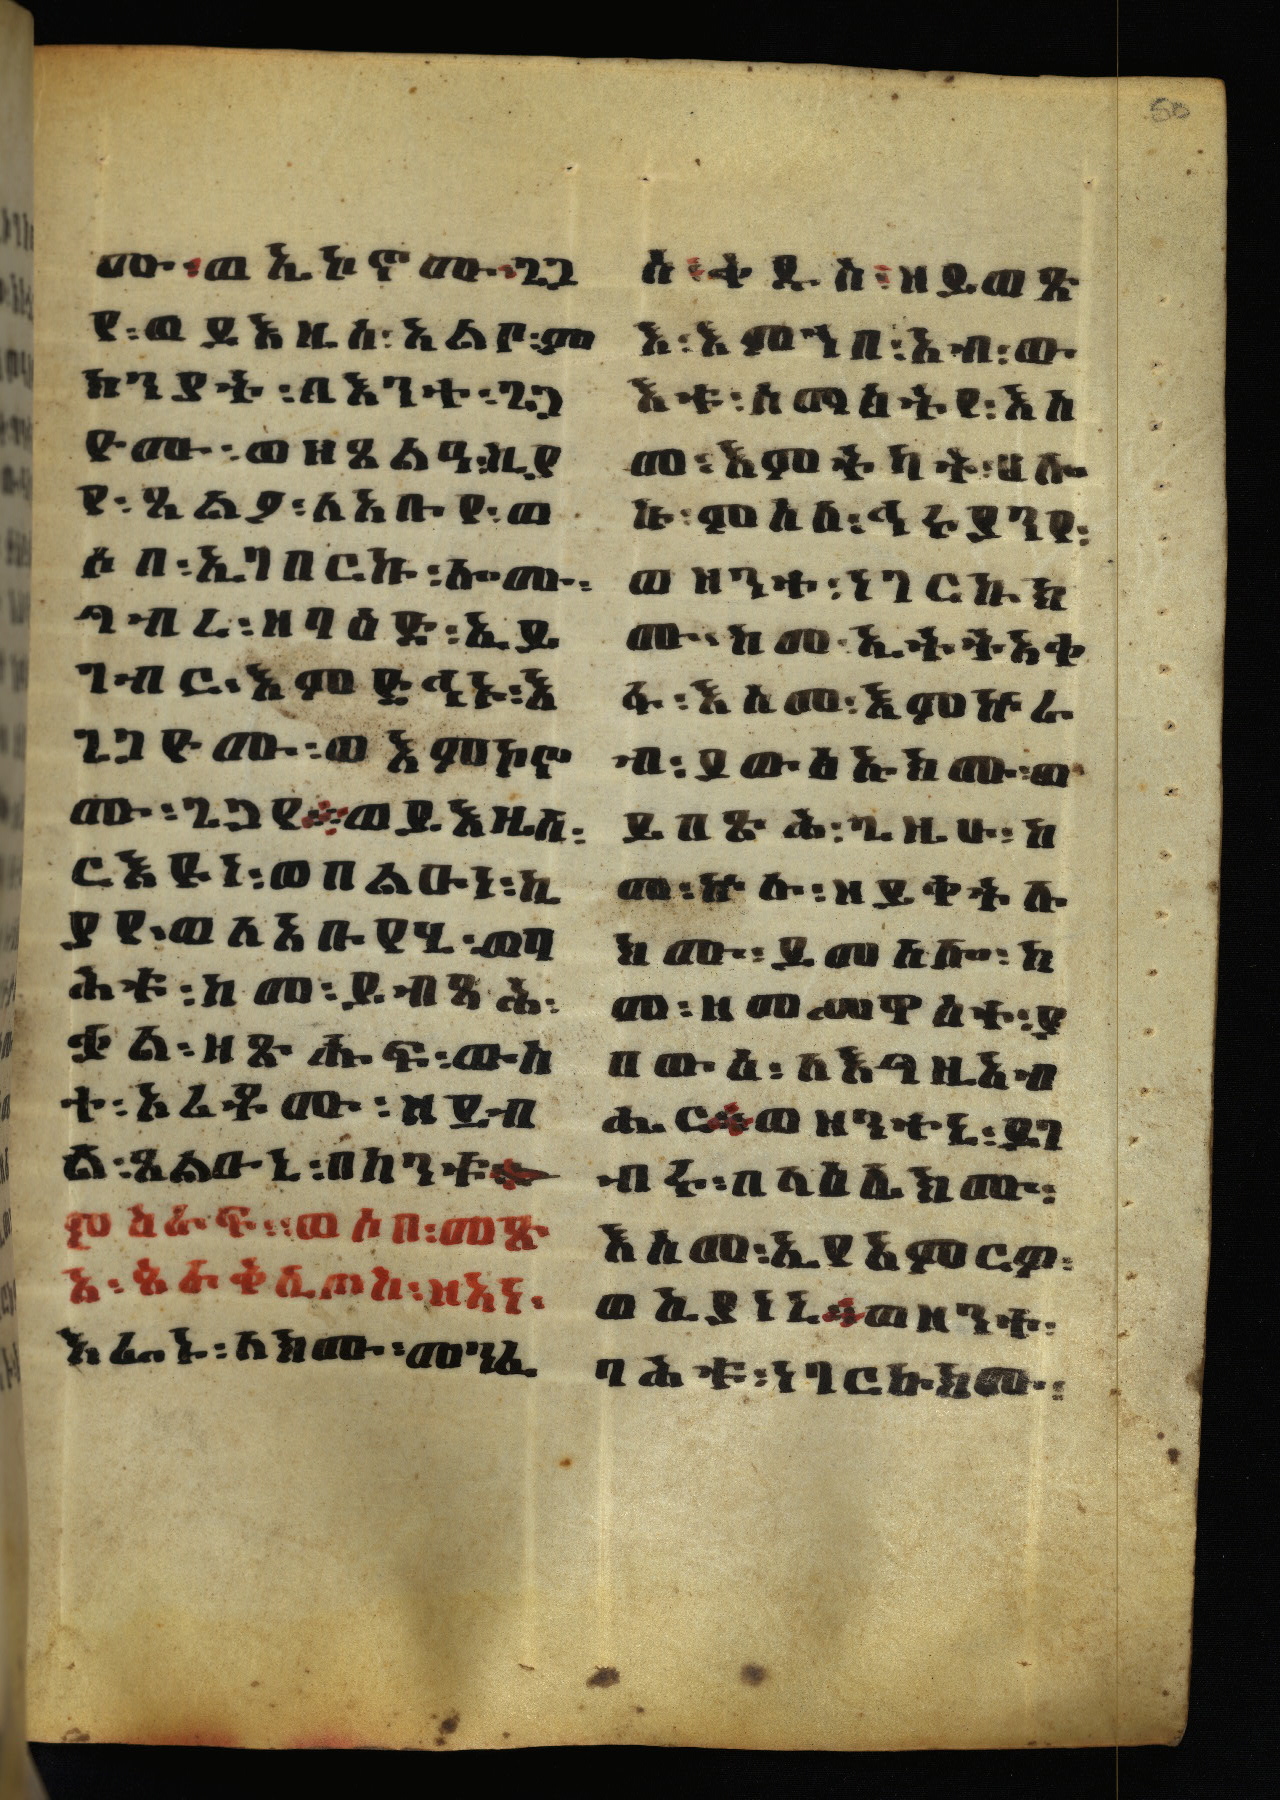 ሙ፡ወኢኮኖሙ፡ጌጋ
የ፡ወይእዜሰ፡አልቦ፡ም
ክንያት፡በእንተ፡ጌጋ
ዮሙ፡ወዘጸልዓ፡ኪየ
የ፡ጸልዖ፡ለአቡየ፡ወ
ሶበ፡ኢግበርኩ፡ሎሙ፡
ግብረ፡ዘባዕድ፡ኢይ
ገብር፡እምድኂኑ፡እ
ጌጋዮሙ፡ወእምኮኖ
ሙ፡ጌጋየ፨ወይእዜሰ፡
ርእዩነ፡ወጸልዑነ፡ኪ
ያየ፡ወለአቡየሂ፡ወባ
ሕቱ፡ከመ፡ይብጻሕ፡
ቃል፡ዘጽሑፍ፡ውስ
ተ፡ኦሪቶሙ፡ዘይብ
ል፡ጸልዑኒ፡በከንቱ፨
ምዕራፍ፡፡ወሶበ፡መጽ
አ፡ጰራቅሊጦስ፡ዘአነ፡
እፌኑ፡ለክሙ፡መንፈ
ስ፡ቅዱስ፡ዘይወጽ
እ፡እምኀበ፡አብ፡ው
እቱ፡ሰማዕትየ፡እስ
መ፡እምትካት፡ሀሎ
ኩ፡ምስለ፡ኅሩያንየ፡
ወዘንተ፡ነገርኩክ
ሙ፡ከመ፡ኢትትአቀ
ፉ፡እስመ፡እምኵራ
ብ፡ያወፅኡክሙ፡ወ
ይበጽሕ፡ጊዜሁ፡ከ
መ፡ኵሉ፡ዘይቀትለ
ክሙ፡ይመስሎ፡ከ
መ፡ዘመሥዋዕተ፡ያ
በውእ፡ለእግዚአብ
ሔር፨ወዘንተኒ፡ይገ
ብሩ፡በላዕሌክሙ፡
እስመ፡ኢያእምርዎ፡
ወኢያነኒ፨ወዘንተ፡
ባሕቱ፡ነገርኩክሙ፡
50